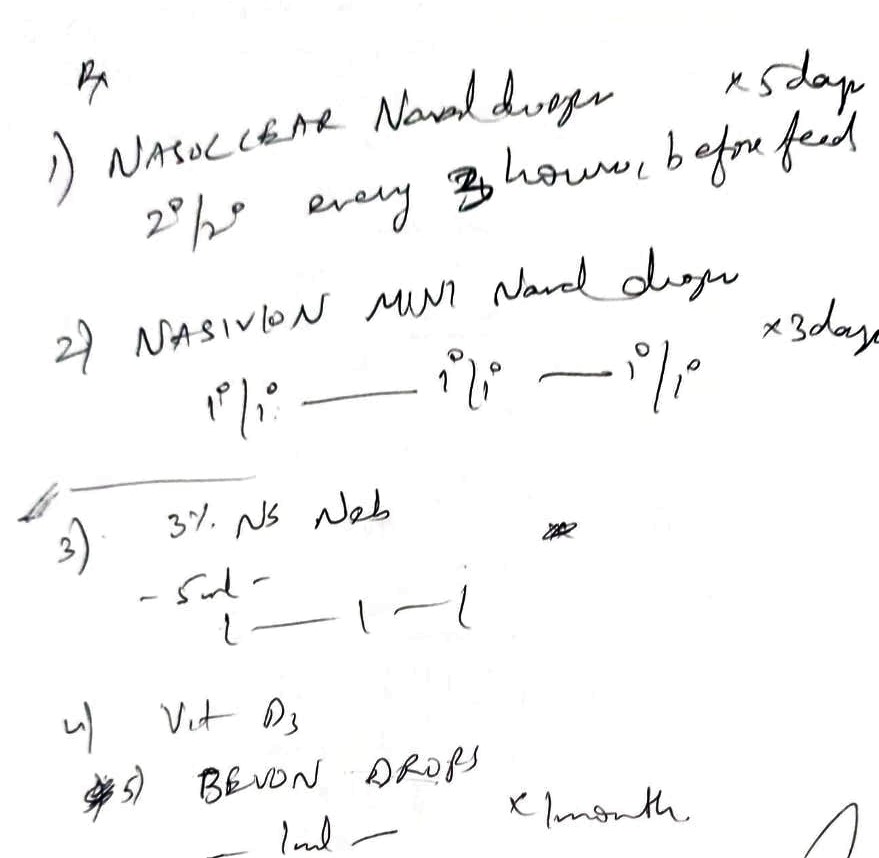 Rx
1) NASOCLEAR Nasal drops x 5 days
2°/2° every hours, before feed
2) NASIVION MINI Nasal drops x 3 days
1°/1° — 1°/1° — 1°/1°
3) 3% NS Neb
- 5 ml -
1 — 1 — 1
4) Vit D3
5) BEVON DROPS
— 1ml — x 1month